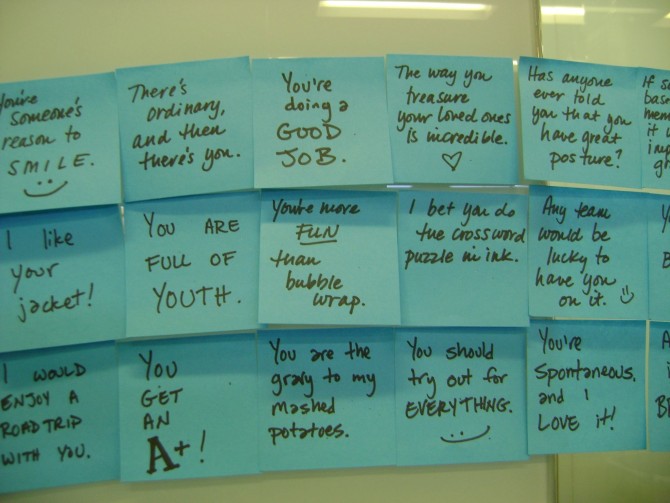 You're
someone's
reason to
SMILE.
There's
ordinary,
and then
there's you.
You're
doing a
GOOD
JOB.
The way you
treasure
your loved ones
is incredible.
Has anyone
ever told
you that you
have great
posture?
If
it
I like
your
jacket!
You ARE
FULL OF
YOUTH.
You're more
FUN
than
bubble
wrap.
I bet you do
the crossword
puzzle in ink.
Any team
would be
lucky to
have you
on it.
I WOULD
ENJOY A
ROAD TRIP
WITH YOU.
YOU
GET
AN
A+!
You are the
gravy to my
mashed
potatoes.
You should
try out for
EVERYTHING.
You're
spontaneous,
and I
LOVE it!